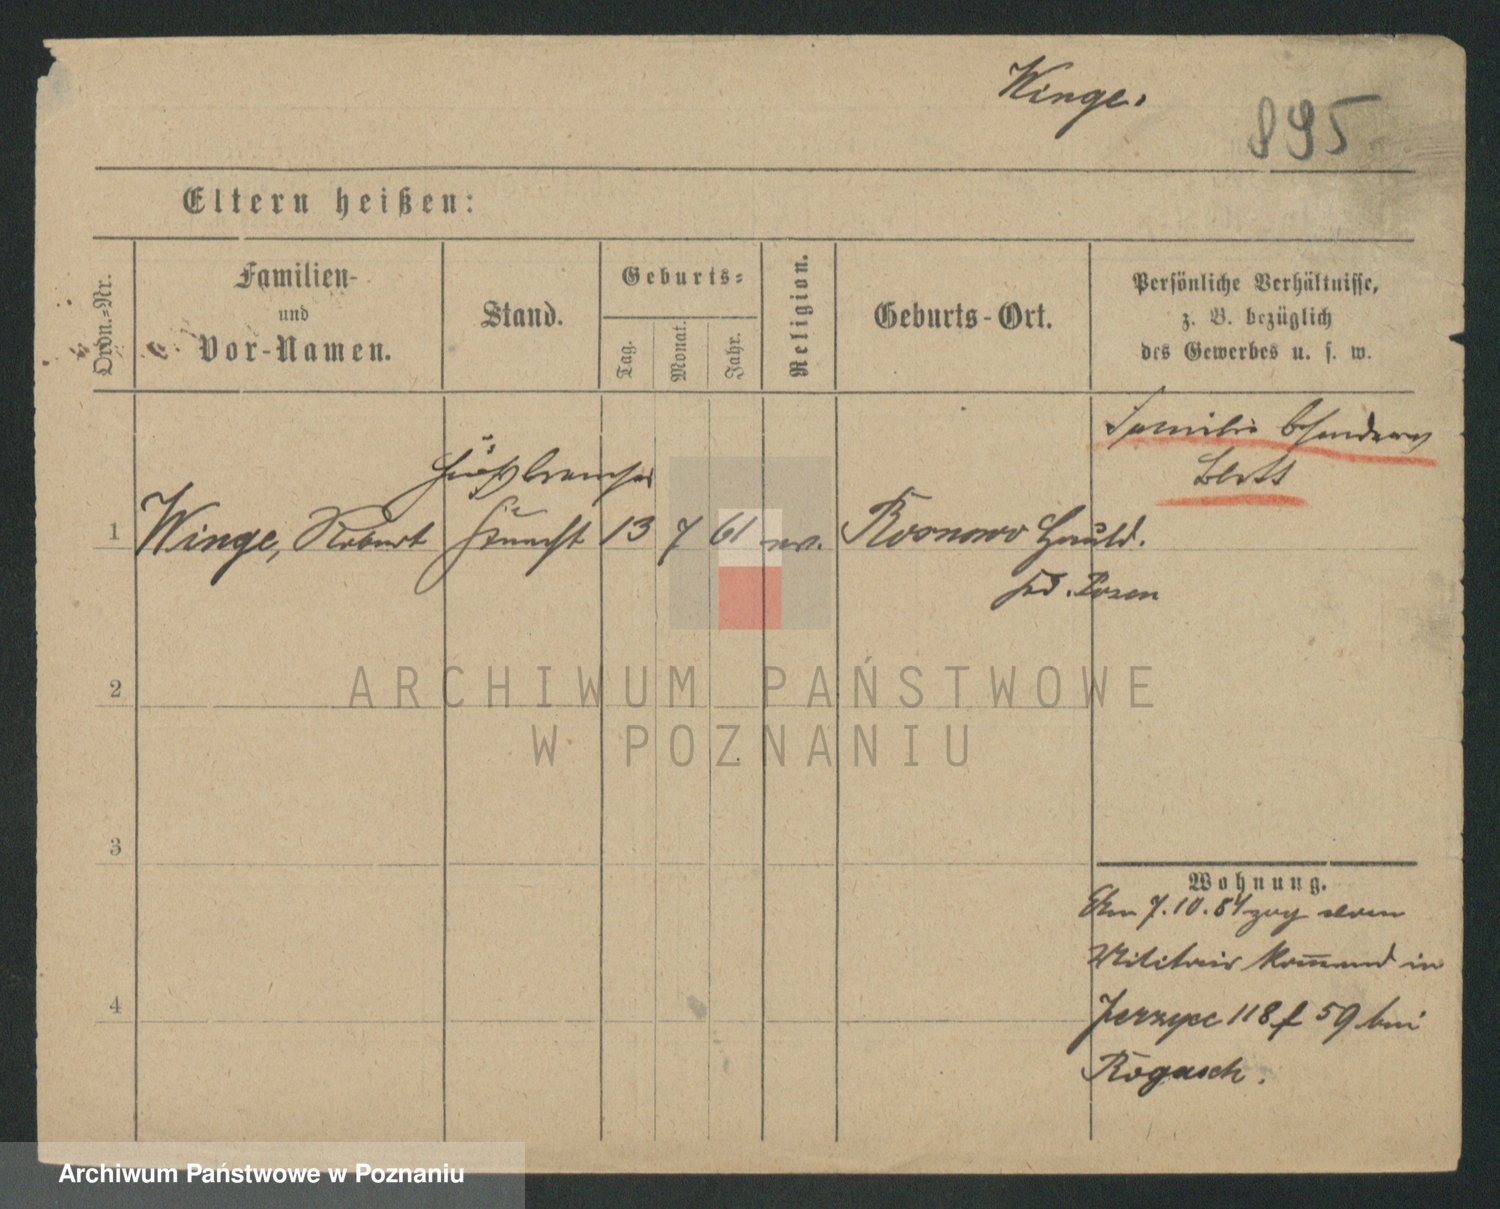 Winge.
895
Eltern heißen:
Ordn.-Nr.
Familien-
und
Vor-Namen.
Stand.
Geburts-
Tag.
Monat.
Jahr.
Religion.
Geburts-Ort.
Persönliche Verhältnisse,
z. B. bezüglich
des Gewerbes u. s. w.
Familie besonderes
Blatt
1 Winge, Robert 13 7 61 ev. Rosnowo Hauld.
Kr. Posen
2
3
4
Wohnung.
Am 7.10.84 zog vom
Militair Kom̄ando in
Jerzyce 118 f 59 bei
Rogasch.
ARCHIWUM PAŃSTWOWE
W POZNANIU
Archiwum Państwowe w Poznaniu